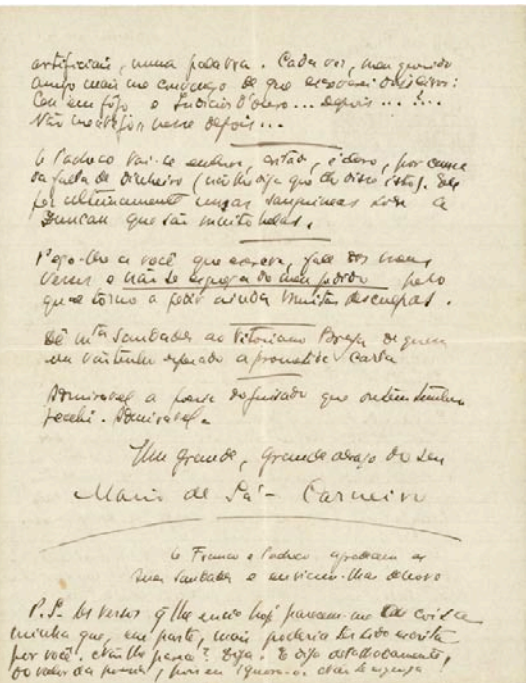 artificiais, numa palavra. Cada vez, meu querido
amigo mais me convenço de que escreverei dois livros:
Céu em fogo e Indícios d'Ouro... depois...
Não me meta for nesse depois...
O Pacheco vai-se embora, então, é claro, por causa
da falta de dinheiro (não lhe diga que lhe disse isto). Ele
fez ultimamente umas sanguíneas sobre a
Duncan que são muito belas.
Peço-lhe a você que escreva, fale dos meus
versos e não se esqueça do meu pedido pelo
que torno a pedir ainda muitas desculpas.
Dê mtas saudades ao Vitoriano Braga de quem
em vão tenho esperado a prometida carta
Admiravel a que ontem tambem
recebi. Admiravel.
Um grande, grande abraço do seu
Mario de Sá-Carneiro
O Franco e Pacheco agradecem as
suas saudades e enviam-lhas de novo
P.S. Os versos q lhe envio hoje parecem-me coisa
minha que, em parte, mais poderia ter sido escrita
por você. Não lhe parece? Diga. E diga detalhadamente,
do valor da poesia, pois eu ignoro-o. Não se esqueça